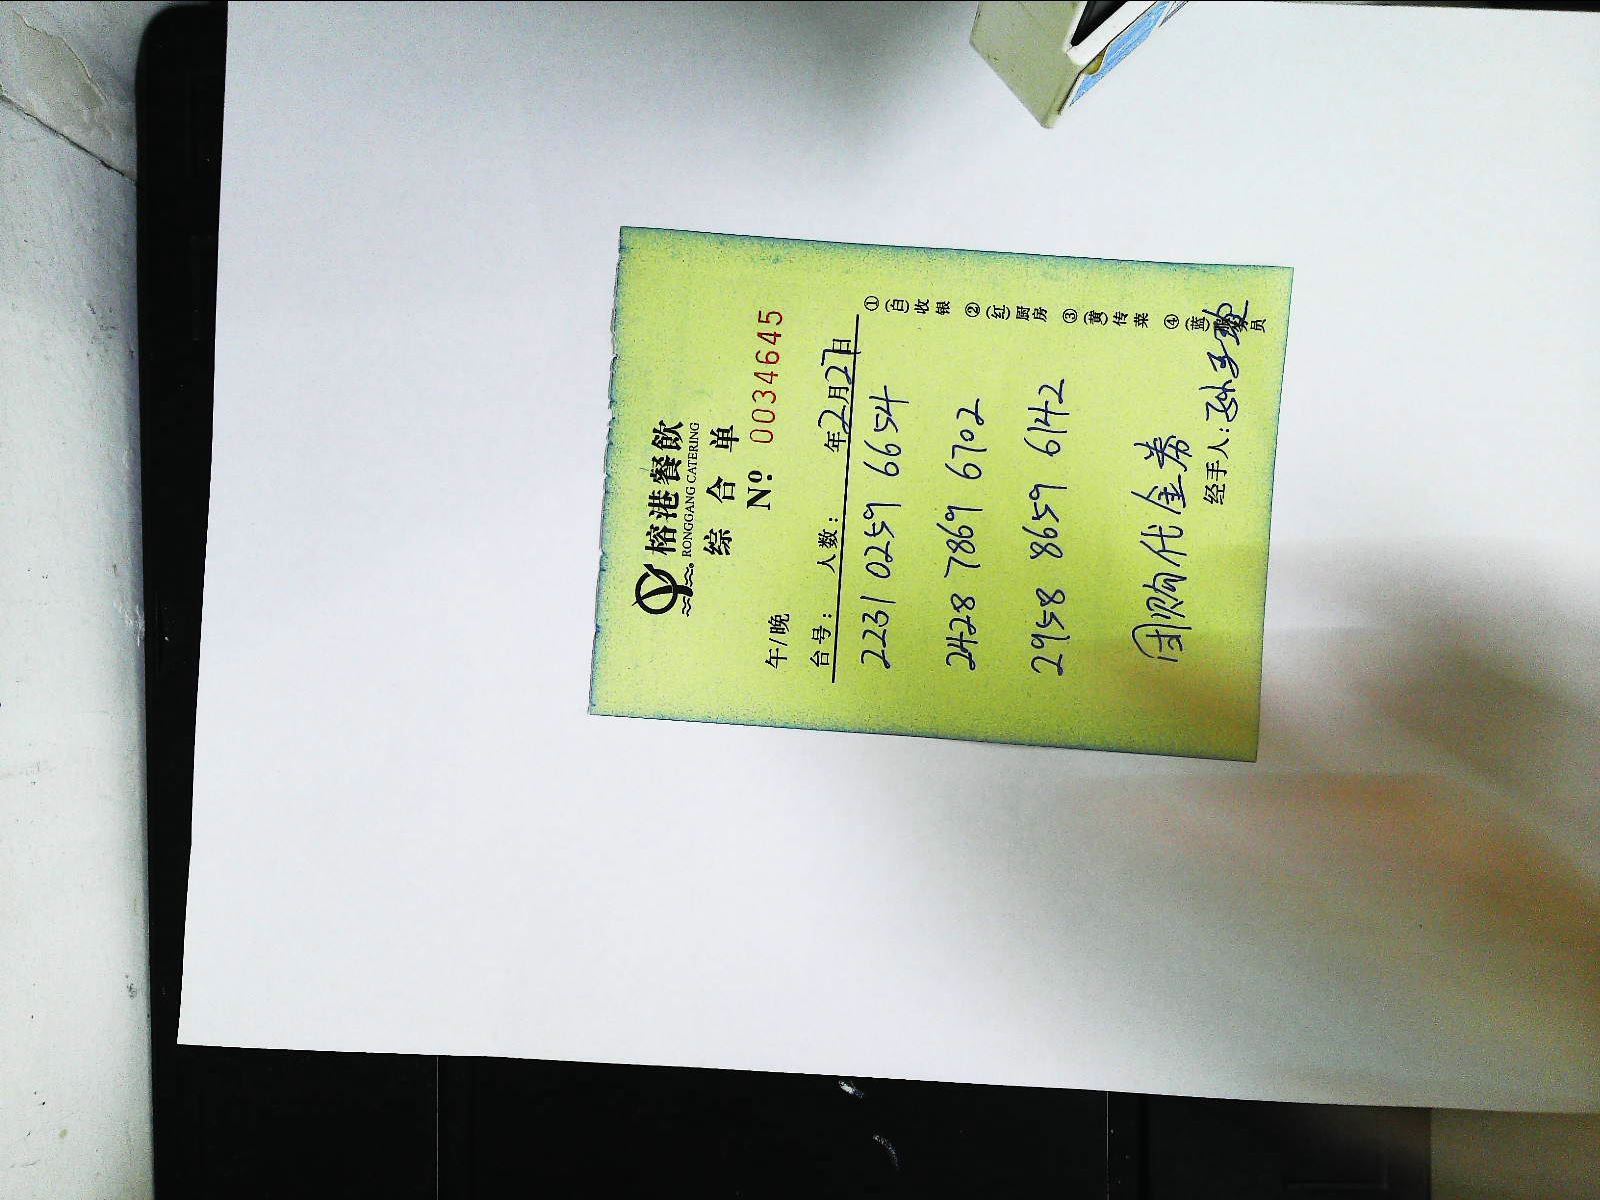 榕港餐飲
RONGGANG CATERING
综合单
午/晚 Nº 0034645
台号: 人数: 年2月27日
2231 0259 6654
2428 7869 6702
2958 8659 6142
团购代金券
经手人: 孙
①(白)收银
②(红)厨房
③(黄)传菜
④(蓝)员